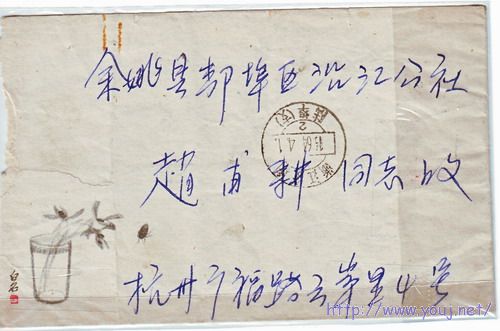 余姚县郚埠区沿江公社
趙甫耕同志收
杭州
路
里4号
浙江
白石
http://www.youj.net/